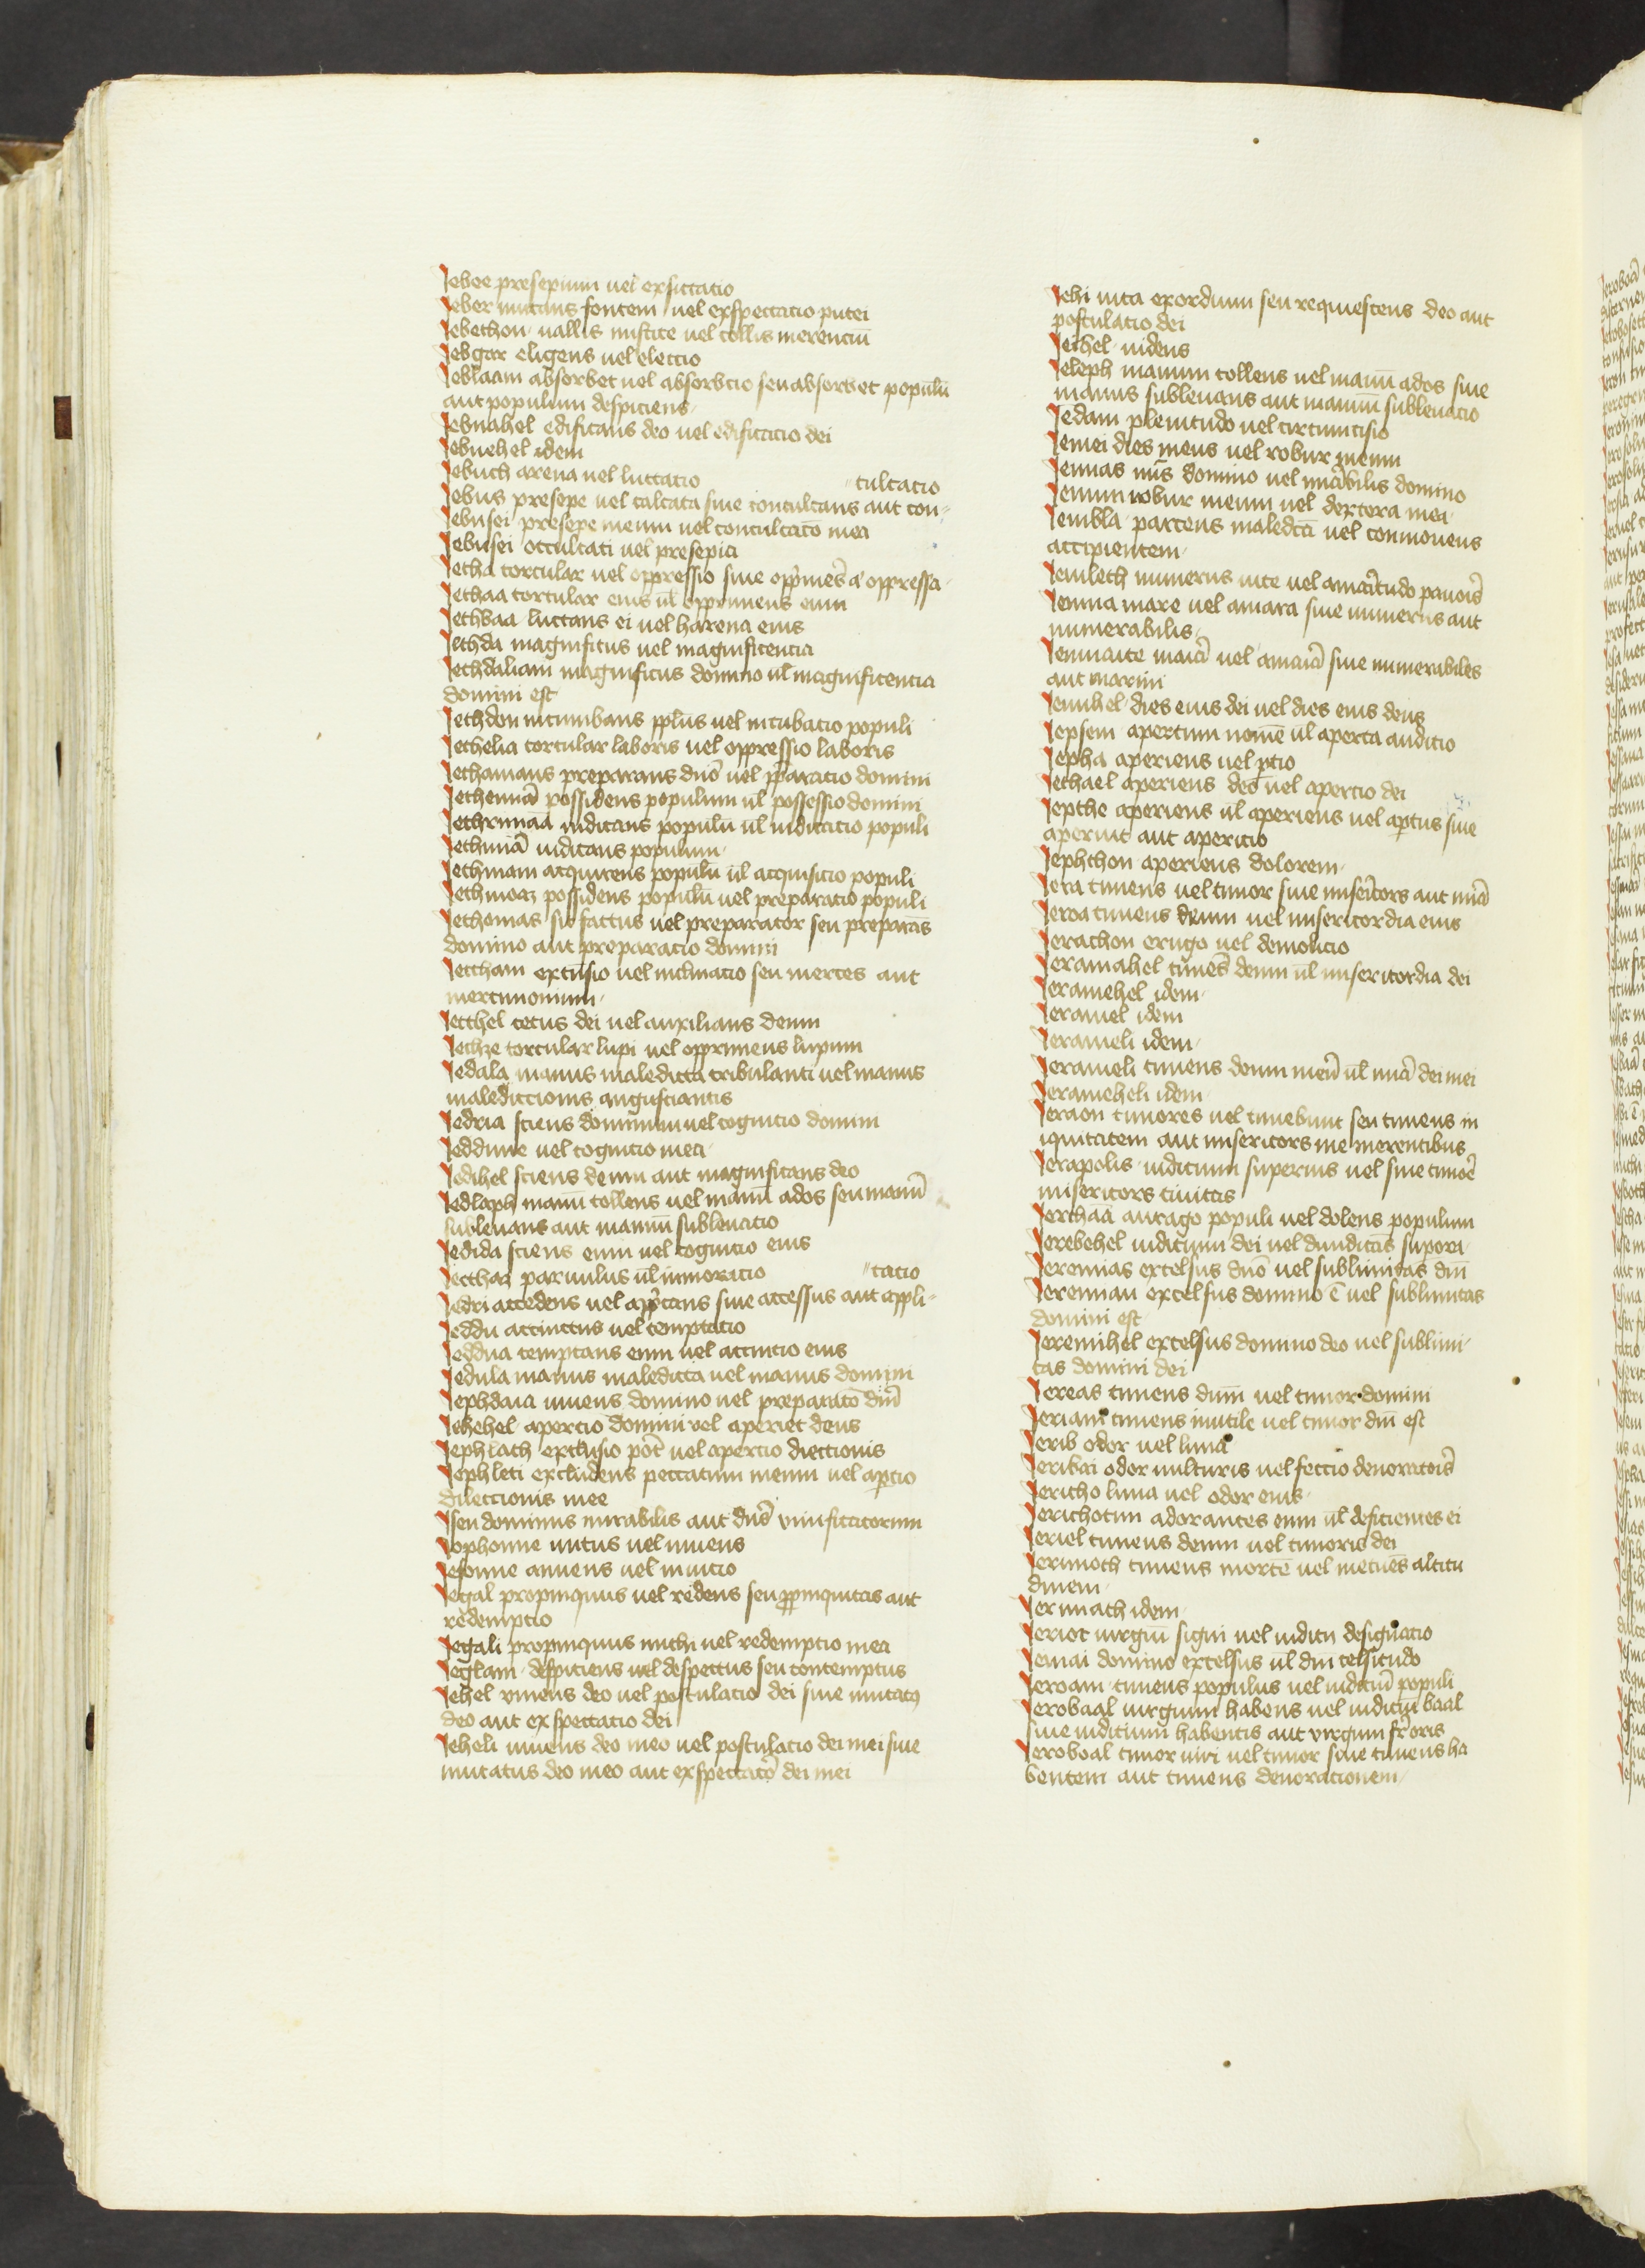 Jebee presepium uel exsiccatio
Jeber mutans fontem uel exspectatio putei
Jebethon uallis mistice uel collis merenciū
Jebgar eligens uel eleccio
Jeblaam absorbet uel absorbcio seu absorbet populū
aut populum despiciens
Jebnahel edificans deo uel edificatio dei
Jebnehel idem
Jebuch arena uel luctatio
Jebus presepe uel calcata siue conculcans aut con
culcatio
Jebusei presepe meum uel conculcatō mea
Jebusei occultati uel presepia
Jecha torcular uel oppressio siue opp̄mēs a' oppressa
Jechaa torcular eius ul̄ opprimens eum
Jechbaa luctans ei uel harena eius
Jechda magnificus uel magnificentia
Jechdaliam magnificus domino ul̄ magnificentia
domini est
Jechdon incumbans pplūs uel incubatio populi
Jechelia torcular laboris uel oppressio laboris
Jechamans preparans dnō uel pp̄aratio domini
Jechemiā possidens populum ul̄ possessio domini
Jechrimaā iudicans populū ul̄ iudicacio populi
Jechimā iudicans populum
Jechmam acquirens populū ul̄ acquisicio populi
Jechmoaz possidens populū uel preparatio populi
Jechomas sic factus uel preparator seu preparās
domino aut preparacio domini
Jectham extēsio uel inclinacio seu merces aut
mercimonium
Jecthel cetus dei uel auxilians deum
Jechze torcular lupi uel opprimens lupum
Jedala manus maledicta tribulanti uel manus
malediccionis angustiantis
Jedria sciens dominum uel cognicio domini
Jeddune uel cognicio mea
Jedihel sciens deum aut magnificans deo
Jedlaph manū tollens uel manū ados seu manū
subleuans aut manum subleuatio
Jedida sciens eum uel cognicio eius
Jectha paruulus ul̄ immoratio
Jedri accedens uel app̄tans siue accessus aut appli
catio
Jeddu accinctus uel temptatio
Jeddua temptans eum uel accincio eius
Jedula manus maledicta uel manus domini
Jephdaia innuens domino uel preparatō dnī
Jehehel apercio domini uel aperiet deus
Jephlach exclusio pōt uel apercio dieccionis
Jephleti excludens peccatum meum uel apcio
dileccionis mee
Jsen dominus mirabilis aut dnē uiuificatorum
Jophonne nutus uel innuens
Jesonne annuens uel inuicio
Jegal propinquus uel redens seu ppinquitas aut
redempcio
Jegali propinquus michi uel redempcio mea
Jeglam despiciens uel despectus seu contemptus
Jehel uiuens deo uel postulacio dei siue mutatꝰ
deo aut exspectatio dei
Jeheli uiuens deo meo uel postulacio dei mei siue
mutatus deo meo aut exspectatō dei mei
Jehi uita exordium seu requiescens deo aut
postulacio dei
Jeihel uidens
Jeleph manum tollens uel manū ados siue
manus subleuans aut manum subleuacio
Jedam plenitudo uel circumcisio
Jemei dies meus uel robur meum
Jemias mīs domino uel mirabilis domino
Jemini robur meum uel dextera mea
Jembla parcens maledcā uel conmouens
accipientem
Jemlech numerus uite uel amaritudo pauoris
Jemna mare uel amara siue numerus aut
numerabilis
Jemnaite maiā uel amaiā siue numerabiles
aut marini
Jemuhel dies eius dei uel dies eius deus
Jepsem apertum nomē ul̄ aperta auditio
Jepha aperiens uel pcio
Jechael aperiens deo uel apercio dei
Jepthe aperiens ul̄ aperiens uel aptus siue
aperuit aut apericio
Jephthon aperiens dolorem
Jera timens uel timor siue misericors aut miā
Jeroa timens deum uel misericordia eius
Jerachon erugo uel demolicio
Jeramahel timēs deum ul̄ misericordia dei
Jeramehel idem
Jeramel idem
Jerameli idem
Jerameli timens deum meū ul̄ miā dei mei
Jerameheli idem
Jeraon timores uel timebunt seu timens in
iquitatem aut misericors me merentibus
Jerapolis iudicium superius uel siue timoē
misericors ciuitas
Jerchaā aurago populi uel dolens populum
Jerebehel iudicium dei uel diiudicās supoei
Jeremias excelsus dnō uel sublimitas dnī
Jeremiau excelsus domino ē uel sublimitas
domini est
Jeremihel excelsus domino deo uel sublimi
tas domini dei
Jereas timens dnm uel timor domini
Jeriam timens inutile uel timor dnī est
Jerib odor uel luna
Jeribai odor uulturis uel feccio deuoratois
Jericho luna uel odor eius
Jerichotim adorantes eum ul̄ deficientes ei
Jeriel timens deum uel timoris dei
Jerimoth timens mortē uel metuēs altitu
dinem
Jerimach idem
Jeriot iurgiū signi uel iudicii designatio
Jemai domino excelsus ul̄ dnī celsitudo
Jeroam timens populus uel iudiciū populi
Jerobaal iurgium habens uel iudiciū baal
siue iudicium habentis aut uirgum srōris
Jeroboal timor uiri uel timor siue timens ha
bentem aut timens deuoracionem